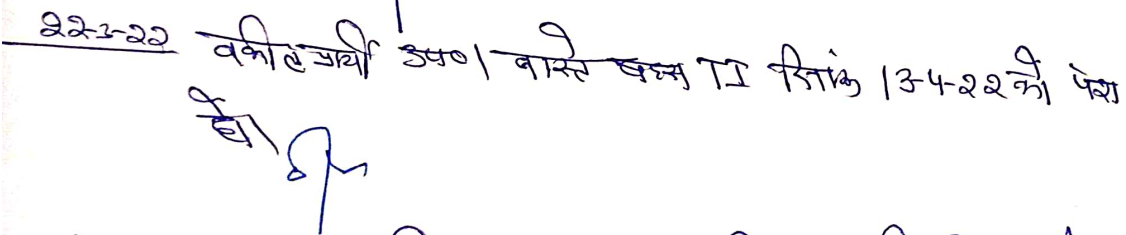 22-3-22 वकील प्रार्थी उप०। वास्ते बहस TI दिनांक 13-4-22 को पेश
हो।